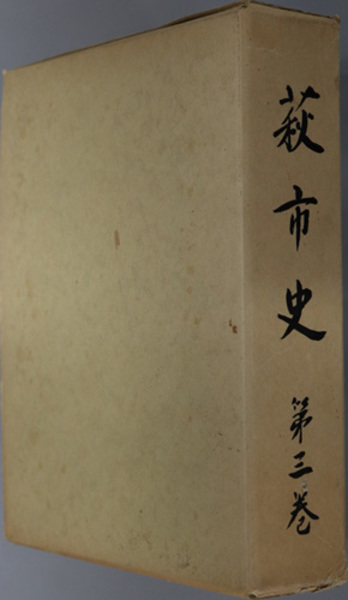 萩市史 第三巻